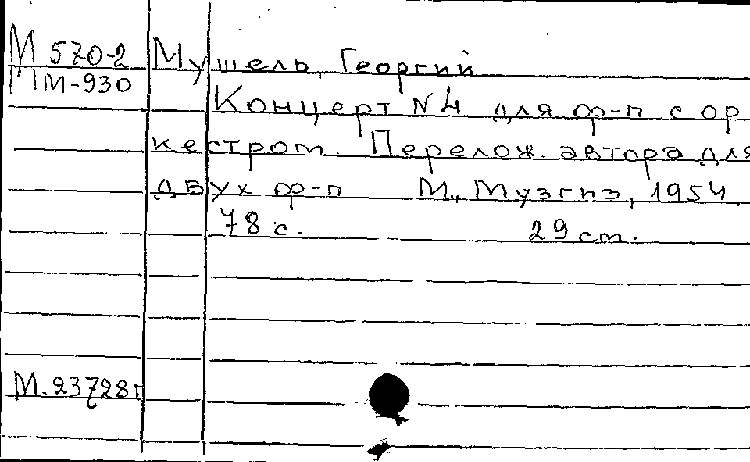 М 570-2 Мушель, Георгий
М-930
Концерт N4 для ф-п с ор
кестром. Перелож. автора для
двух ф-п М., Музгиз, 1954
78 с. 29 см.
М.23728г